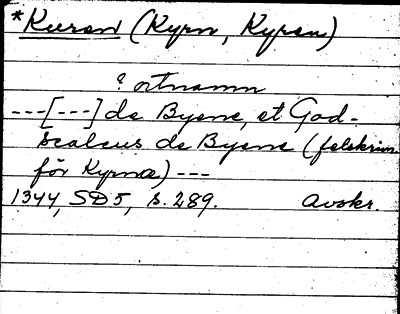 *Kuren (Kyrn, Kyren)
? ortnamn
---[---] de Byrne, et God-
scalcus de Byrne (felskrivn
för Kyrnæ) ---
1344, SD 5, s. 289. Avskr.